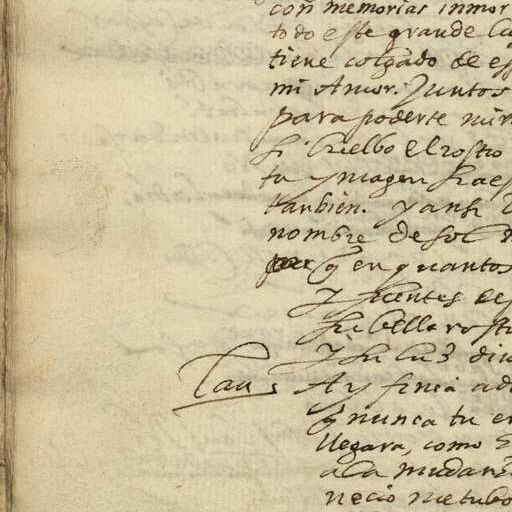 con memorias inmor
todo este grande lu
tiene colgado de es
mi Amor. Juntos
para poderte mir
si buelbo el rostro
tu ymagen
tanbien. y ansi
nombre de sol
q en quantos
y fuentes de
su bello rostr
y su luz di
Laus Ay finea ad
q nunca tu en
llegara, como
a la mudanz
necio me tubo